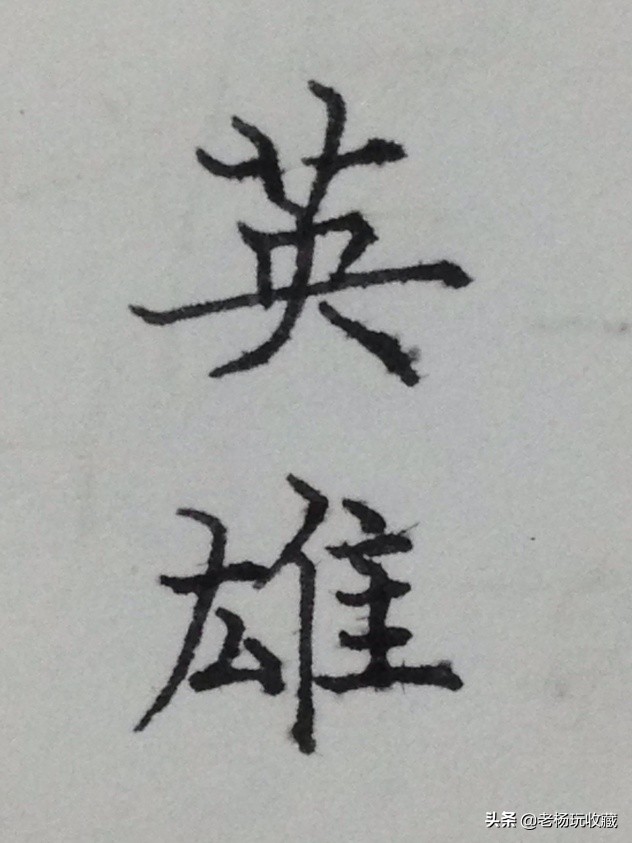 英
雄
头条 @老杨玩收藏